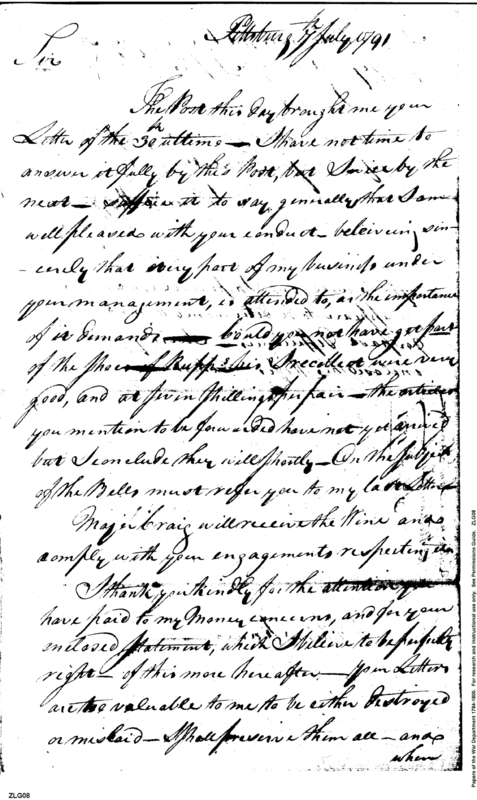 Pittsburg 7th July 1791
Sir
The Post this day brought me your
Letter of the 30th ultimo — I have not time to
answer it fully by this Post, but I will by the
next — suffice it to say, generally that I am
well pleased with your conduct — beleiving sin-
-cerely that every part of my business under
your management, is attended to, as the importance
of it demands — Could you not have got part
of the Shoes of Rupp? his I recollect were very
good, and at seven Shillings per pair — the articles
you mention to be forwarded have not yet arrived
but I conclude they will shortly — On the Subject
of the Bells must refer you to my last Letter
Major Craig will receive the Wine and
comply with your engagements respecting it
I thank you kindly for the attention you
have paid to my Money concerns, and for your
enclosed Statement, which I believe to be perfectly
right — of this more hereafter — your Letters
are too valuable to me to be either destroyed
or mislaid — I shall preserve them all — and
when
ZLG08
Papers of the War Department 1784-1800. For research and instructional use only. See Permissions Guide. ZLG08